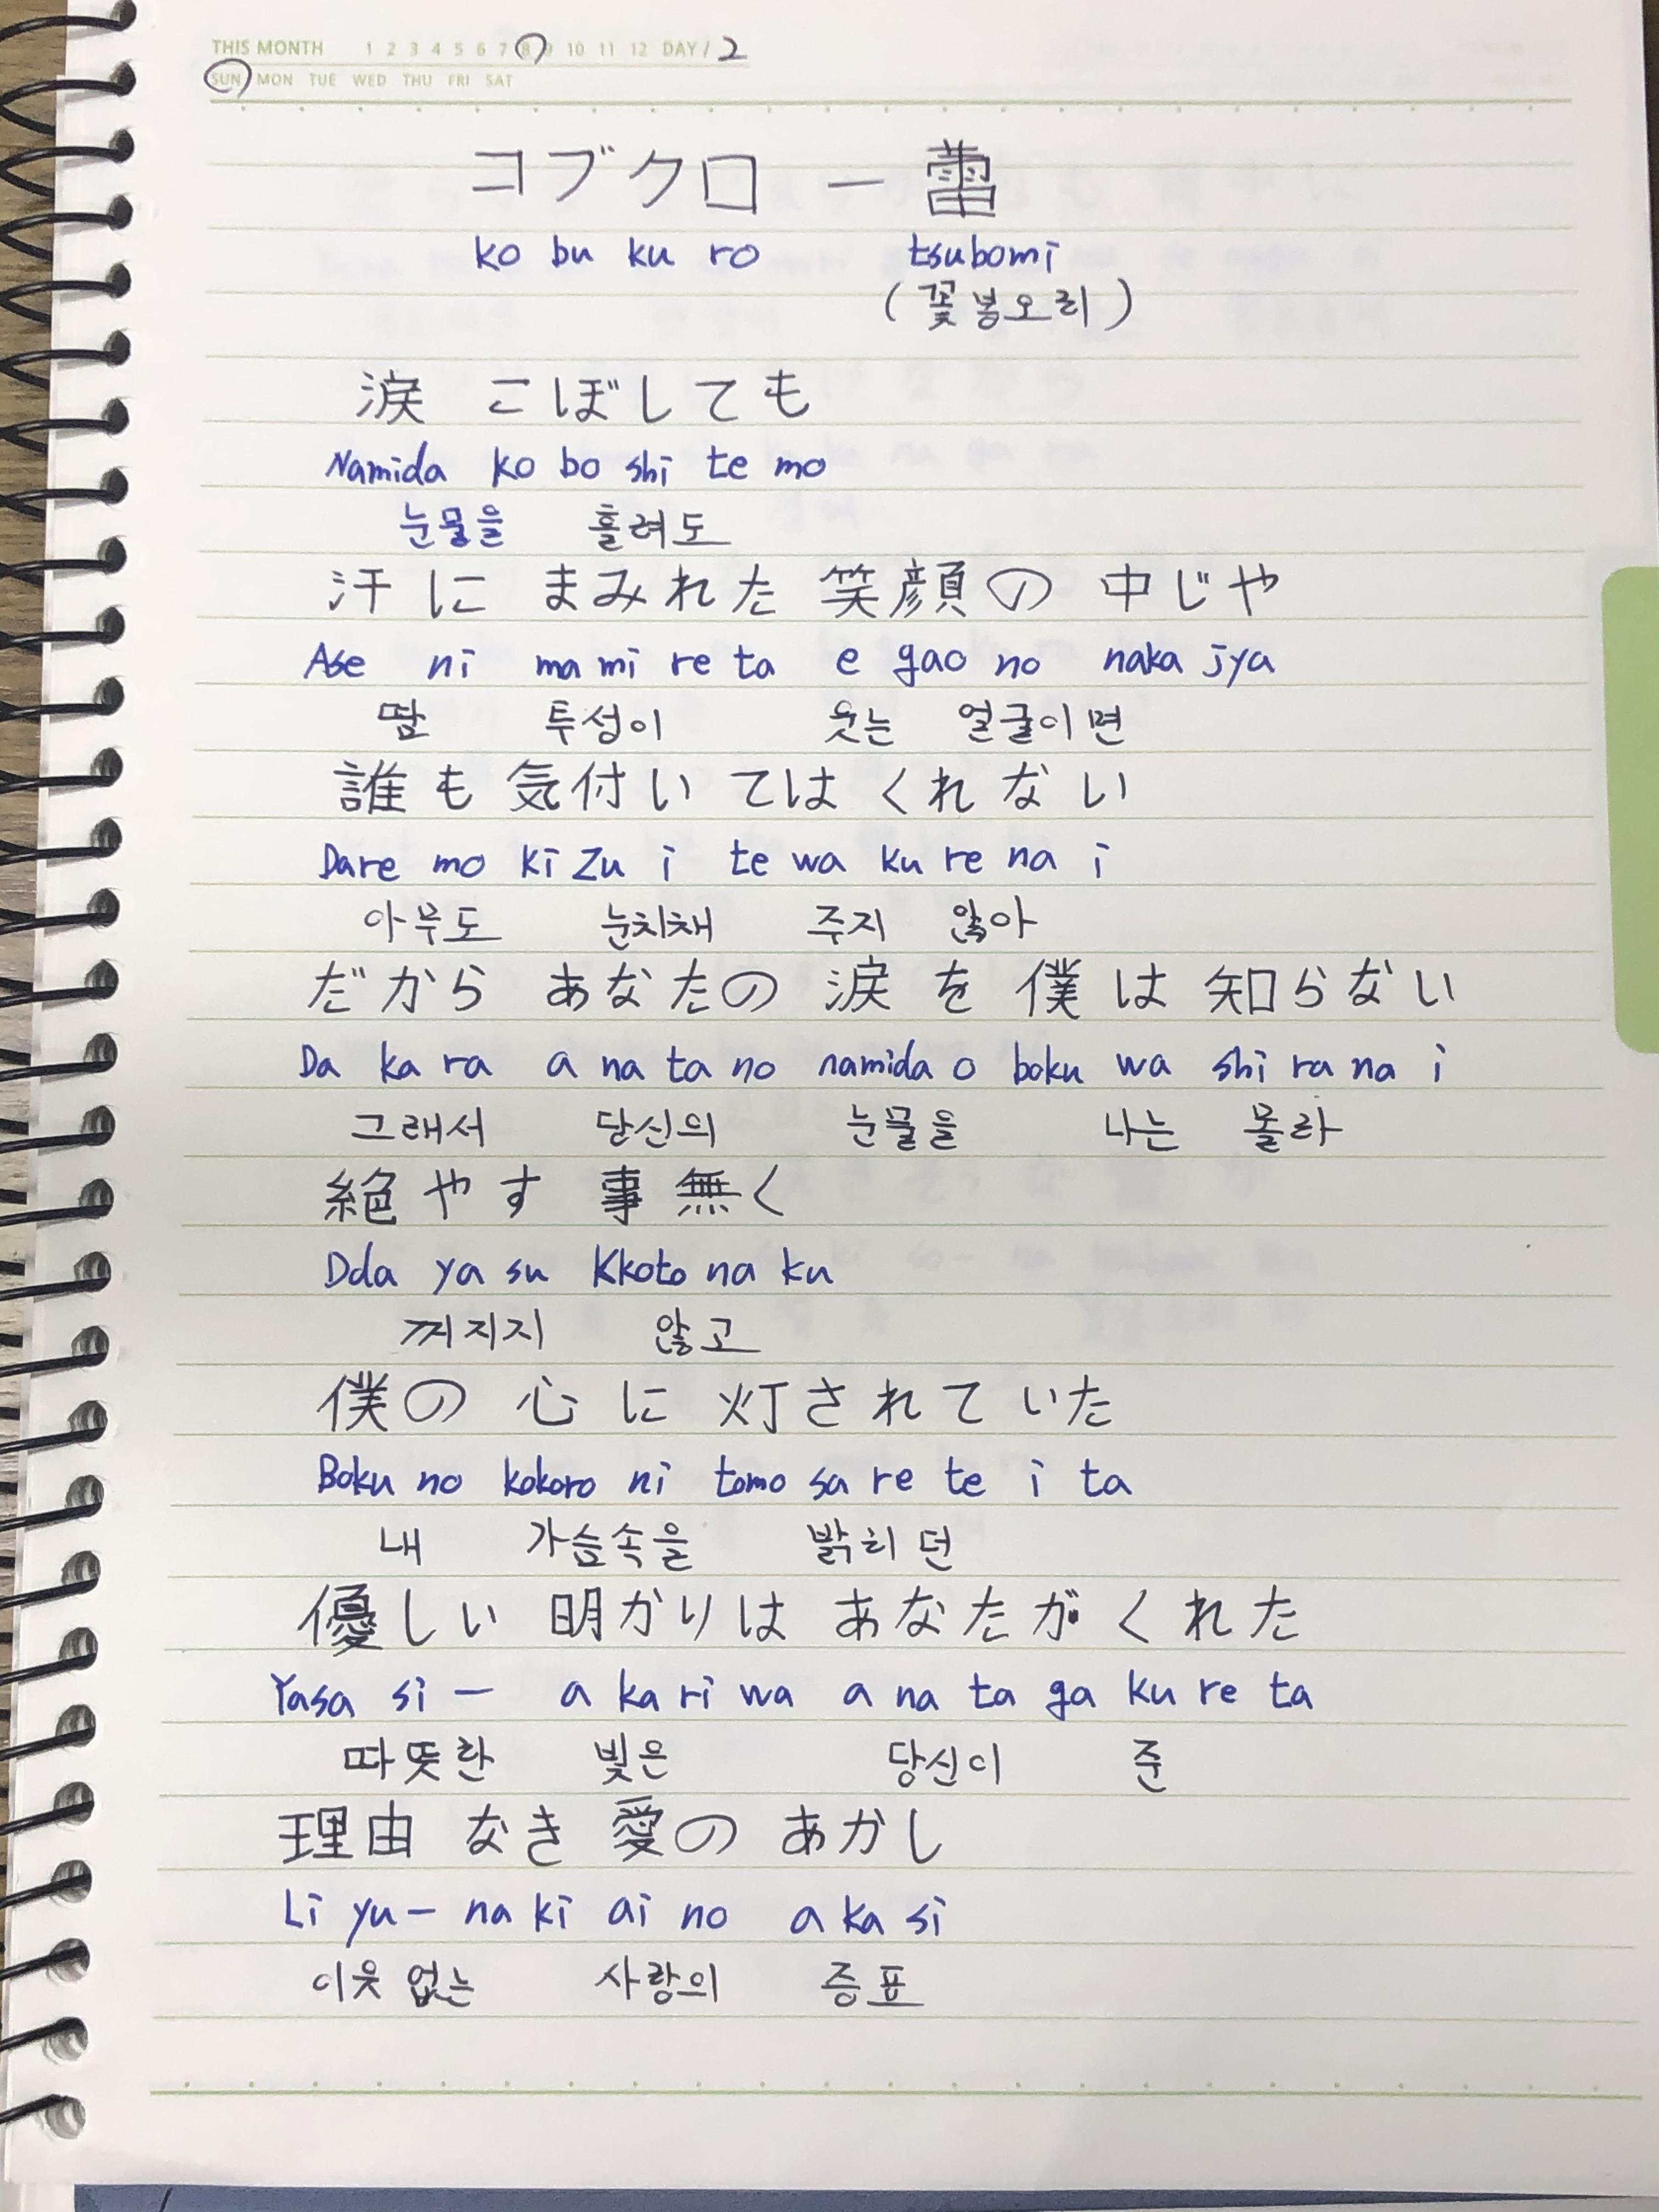 THIS MONTH 1 2 3 4 5 6 7 8 9 10 11 12 DAY / 2
SUN MON TUE WED THU FRI SAT
コブクロ ー 蕾
ko bu ku ro tsubomi
(꽃봉오리)
涙 こぼしても
Namida ko bo shi te mo
눈물을 흘려도
汗に まみれた 笑顔の 中じや
Ase ni ma mi re ta e gao no naka jya
땀 투성이 웃는 얼굴이면
誰も 気付いてはくれない
Dare mo ki zu i te wa ku re na i
아무도 눈치채 주지 않아
だから あなたの 涙を 僕は 知らない
Da ka ra a na ta no namida o boku wa shi ra na i
그래서 당신의 눈물을 나는 몰라
絶やす 事無く
Dda ya su kkoto na ku
꺼지지 않고
僕の 心に 灯されていた
Boku no kokoro ni tomo sa re te i ta
내 가슴속을 밝히던
優しい 明かりは あなたが くれた
Yasa si ー a ka ri wa a na ta ga ku re ta
따뜻한 빛은 당신이 준
理由 なき 愛の あかし
Li yu ー na ki ai no a ka si
이웃없는 사랑의 증표